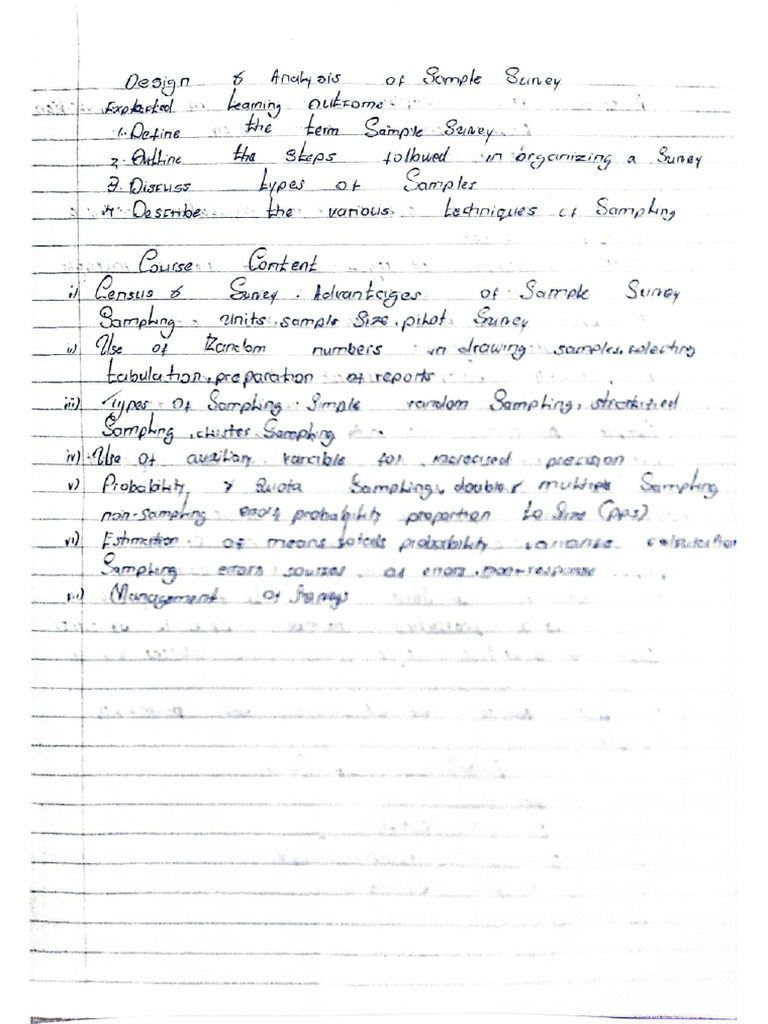 Design & Analysis of Sample Survey
Expected Learning Outcome
1. Define the term Sample Survey
2. Outline the steps followed in organizing a Survey
3. Discuss types of Samples
4. Describe the various techniques of Sampling
Course Content
i) Census & Survey. Advantages of Sample Survey
Sampling. Units, sample Size, pilot Survey
ii) Use of Random numbers in drawing samples, selecting
tabulation, preparation of reports
iii) Types of Sampling. Simple random Sampling, stratified
Sampling, cluster Sampling
iv) Use of auxiliary variable for increased precision
v) Probability & Quota Sampling, double & multiple Sampling
non-sampling errors probability proportion to Size (pps)
vi) Estimation of means totals probability variance calculation
Sampling errors sources of errors, non-response
vii) Management of Surveys